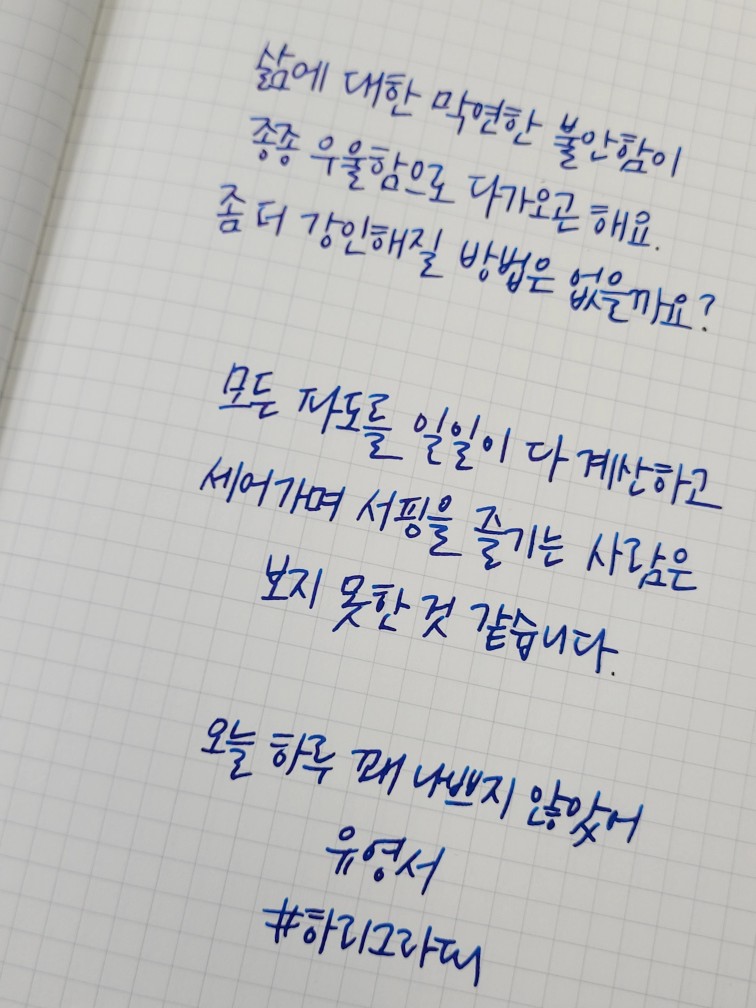 삶에 대한 막연한 불안함이
종종 우울함으로 다가오곤 해요.
좀 더 강인해질 방법은 없을까요?
모든 파도를 일일이 다 계산하고
세어가며 서핑을 즐기는 사람은
보지 못한 것 같습니다.
오늘 하루 꽤 나쁘지 않았어
유영서
#하리그라피